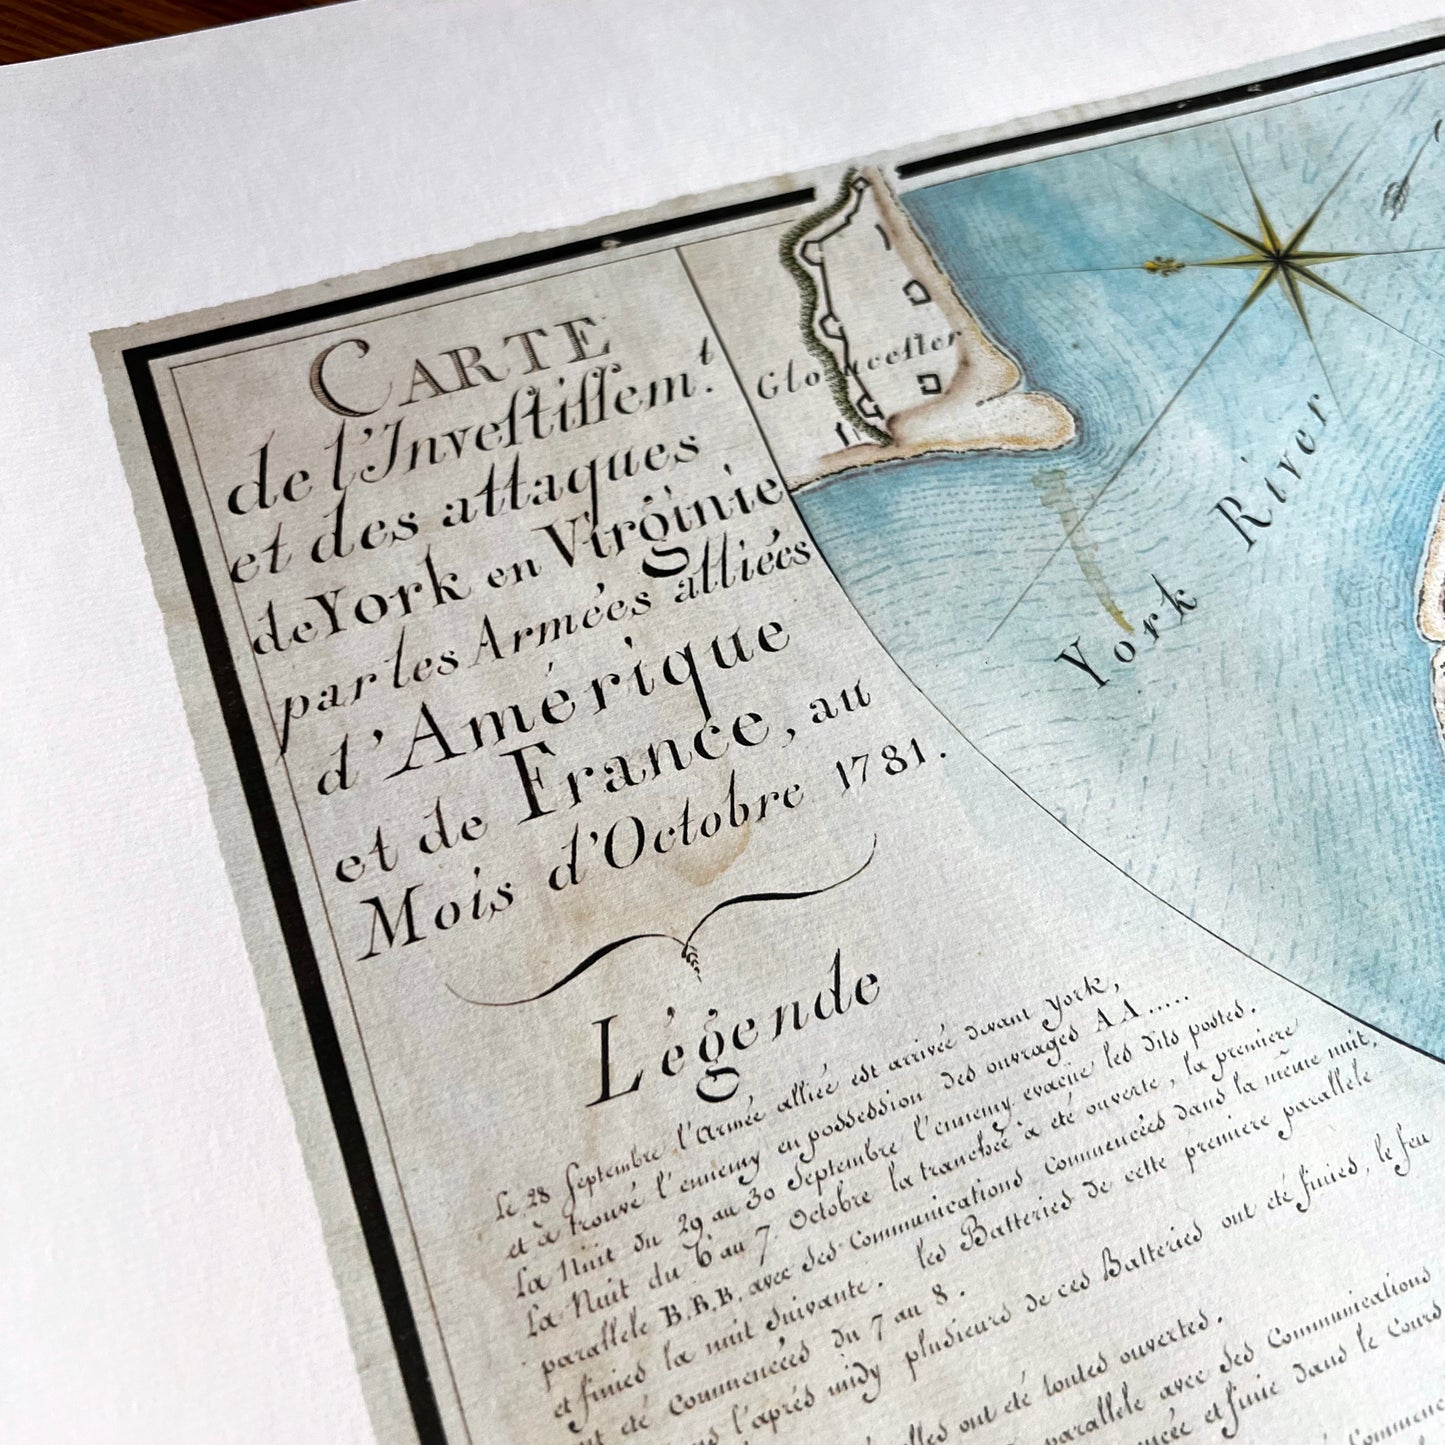 CARTE
de l'Inveſtiſſem.t
et des attaques
de York en Virginie
par les Armées alliées
d'Amérique
et de France, au
Mois d'Octobre 1781.
Glouceſter
York River
Légende
Le 28 Septembre, l'Armée alliée est arrivée devant York,
et à trouvé l'ennemy en possession des ouvrages AA.....
La Nuit du 29 au 30 Septembre l'ennemy evacüe les dits postes.
La Nuit du 6 au 7 Octobre la tranchée à été ouverte, la premiere
parallele B.B.B. avec des Communications Commencées dans la même nuit,
et finies la nuit suivante. les Batteries de cette premiere parallele
ont été Commencées du 7 au 8.
l'après midy plusieurs de ces Batteries ont été finies, le feu
elles ont été toutes ouvertes.
parallele avec des Communications
et finie dans le Cours